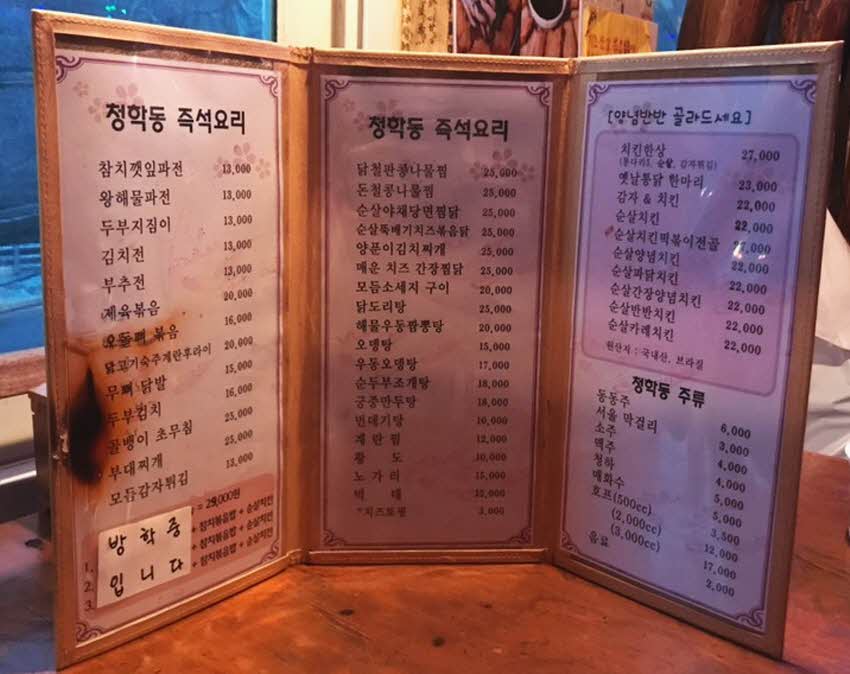 청학동 즉석요리
참치깻잎파전 13,000
왕해물파전 13,000
두부지짐이 13,000
김치전 13,000
부추전 13,000
제육볶음 20,000
오돌뼈 볶음 16,000
닭고기숙주계란후라이 20,000
무뼈 닭발 15,000
두부김치 16,000
골뱅이 초무침 25,000
부대찌개 25,000
모듬감자튀김 13,000
= 29,000원
1. + 참치볶음밥 + 순살치킨
2. + 참치볶음밥 + 순살치킨
3. + 참치볶음밥 + 순살치킨
방학중
입니다
청학동 즉석요리
닭철판콩나물찜 25,000
돈철콩나물찜 25,000
순살야채당면찜닭 25,000
순살뚝배기치즈볶음닭 25,000
양푼이김치찌개 25,000
매운 치즈 간장찜닭 25,000
모듬소세지 구이 20,000
닭도리탕 25,000
해물우동짬뽕탕 20,000
오뎅탕 15,000
우동오뎅탕 17,000
순두부조개탕 18,000
궁중만두탕 18,000
번데기탕 10,000
계란찜 12,000
황도 10,000
노가리 15,000
먹태
*치즈토핑 3,000
[양념반반 골라드세요]
치킨한상 27,000
(통다리5, 순살, 감자튀김)
옛날통닭 한마리 23,000
감자 & 치킨 22,000
순살치킨 22,000
순살치킨떡볶이전골 27,000
순살양념치킨 22,000
순살파닭치킨 22,000
순살간장양념치킨 22,000
순살반반치킨 22,000
순살카레치킨 22,000
원산자 : 국내산, 브라질
청학동 주류
동동주 6,000
서울 막걸리 3,000
소주 4,000
맥주 4,000
청하 5,000
매화수 5,000
호프(500cc) 3,500
(2,000cc) 12,000
(3,000cc) 17,000
음료 2,000